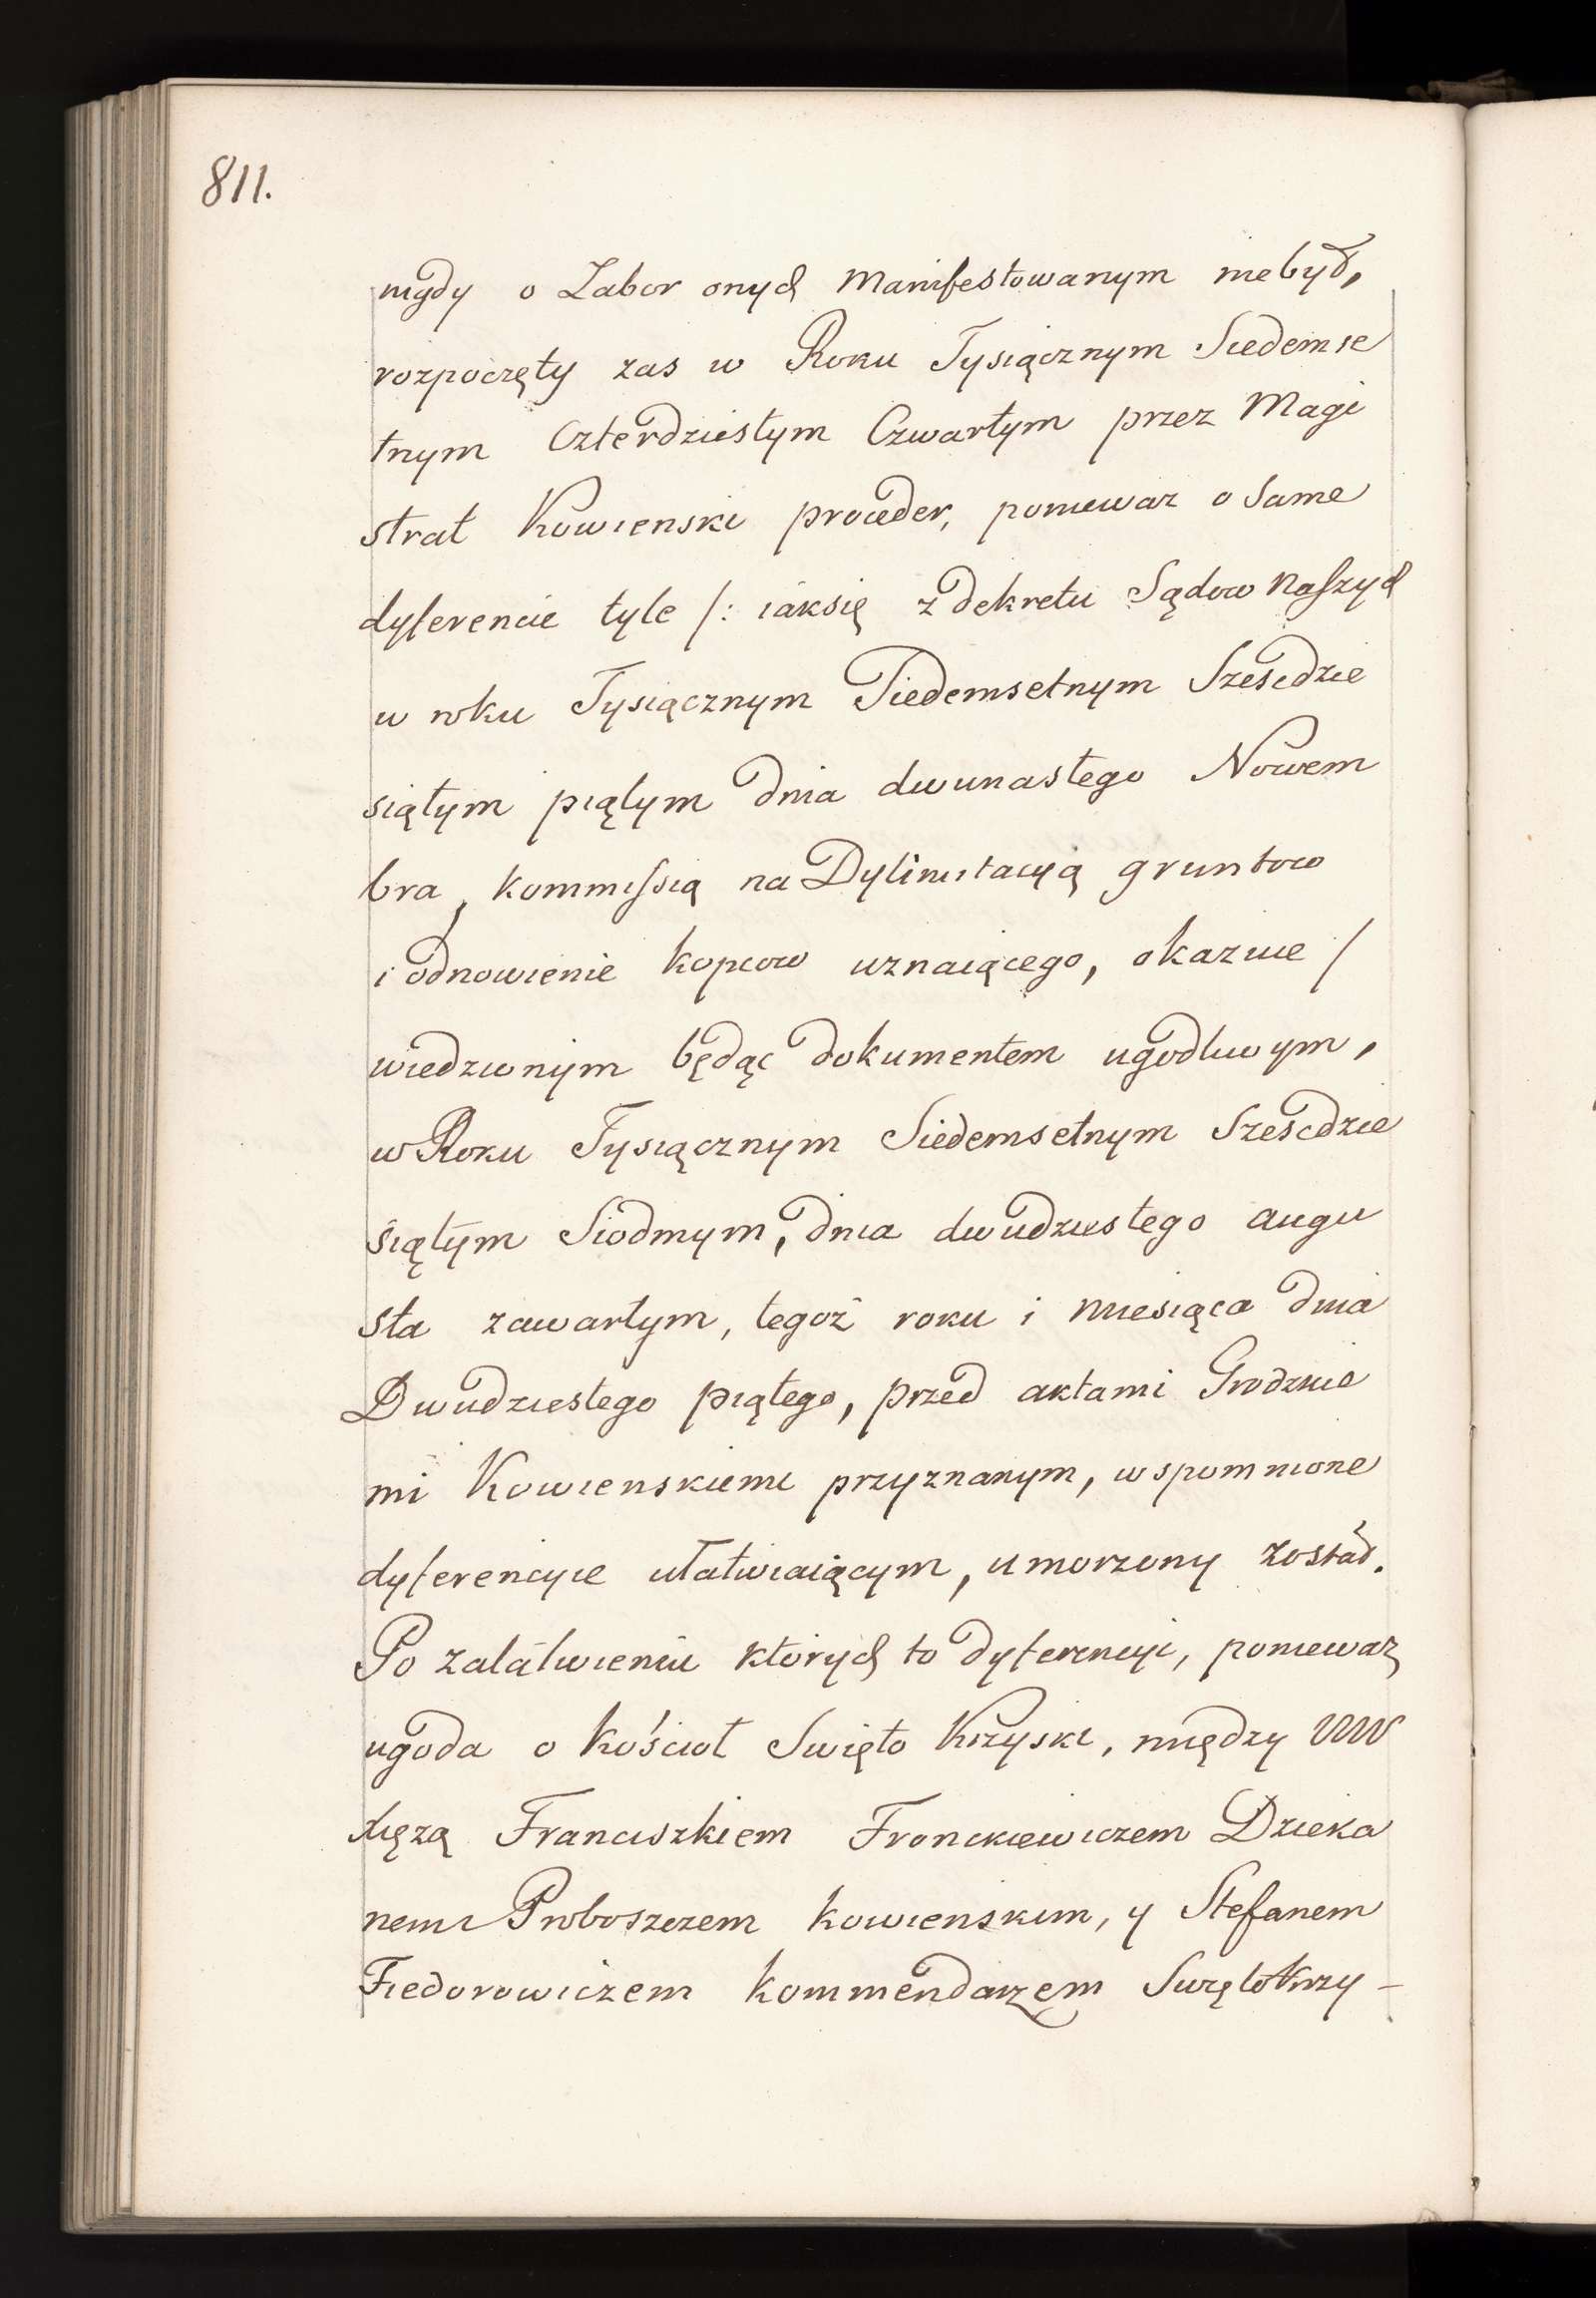 811.
nigdy o Zabor onych Manifestowanym niebył,
rozpoczęty zas w Roku Tysiącznym Siedemse
tnym Czterdziestym Czwartym przez Magi
strat Kowienski proceder, poniewaz o same
dyferencie tyle /: iáksię z dekretu Sądow naszych
w roku Tysiącznym Siedemsetnym Szescdzie
siątym piątym dnia dwunastego Nowem
bra, kommissią na Dylimitacyą gruntow
i odnowienie kopcow uznaiącego, okazuie /
wiedzionym będąc dokumentem ugodliwym,
w Roku Tysiącznym Siedemsetnym Szescdzie
siątym Siodmym, dnia dwudziestego augu
sta zawartym, tegoż roku i miesiąca dnia
Dwudziestego piątego, przed aktami Grodzkie
mi Kowienskiemi przyznanym, wspomnione
dyferencyie ułatwiaiącym, umorzony został.
Po załatwieniu których to dyferencyi, poniewaz
ugoda o kościoł Swięto Krzyski, między WW
xięzą Franciszkiem Fronckiewiczem Dzieka
nemi Proboszczem kowienskim, y Stefanem
Fiedorowiczem kommendarzem Swięto Krzy-